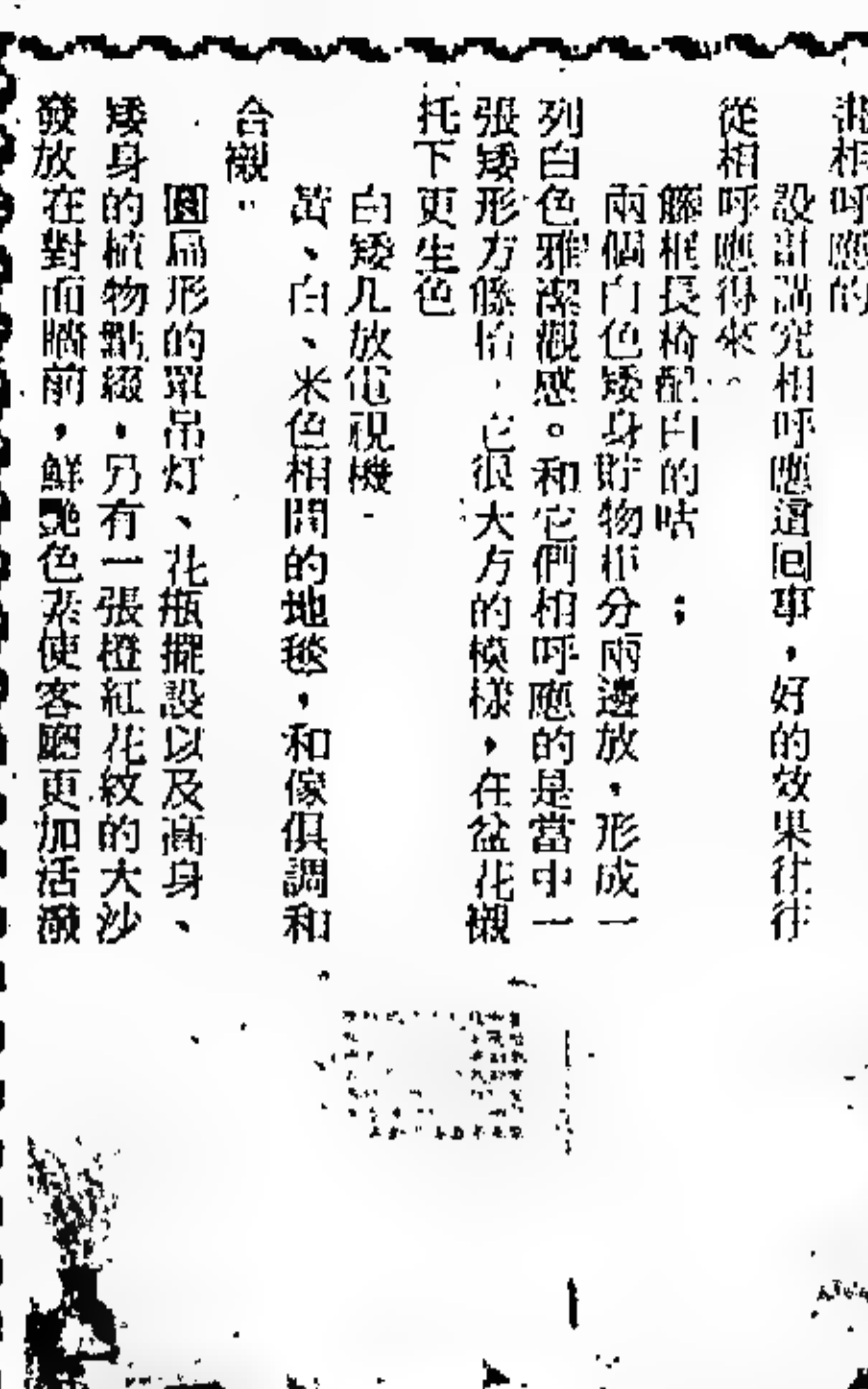 畫相呼應的
設計講究相呼應這回事，好的效果往往
從相呼應得來。
籐框長椅配白的咕　；
兩個白色矮身貯物柜分兩邊放，形成一
列白色雅潔觀感。和它們相呼應的是當中一
張矮形方餘枱，它很大方的模樣，在盆花襯
托下更生色
白矮几放電視機。
黃、白、米色相間的地毯，和傢俱調和
合襯。
圓扁形的單吊灯、花瓶擺設以及高身、
矮身的植物點綴，另有一張橙紅花紋的大沙
發放在對面牆前，鮮艷色素使客廳更加活潑